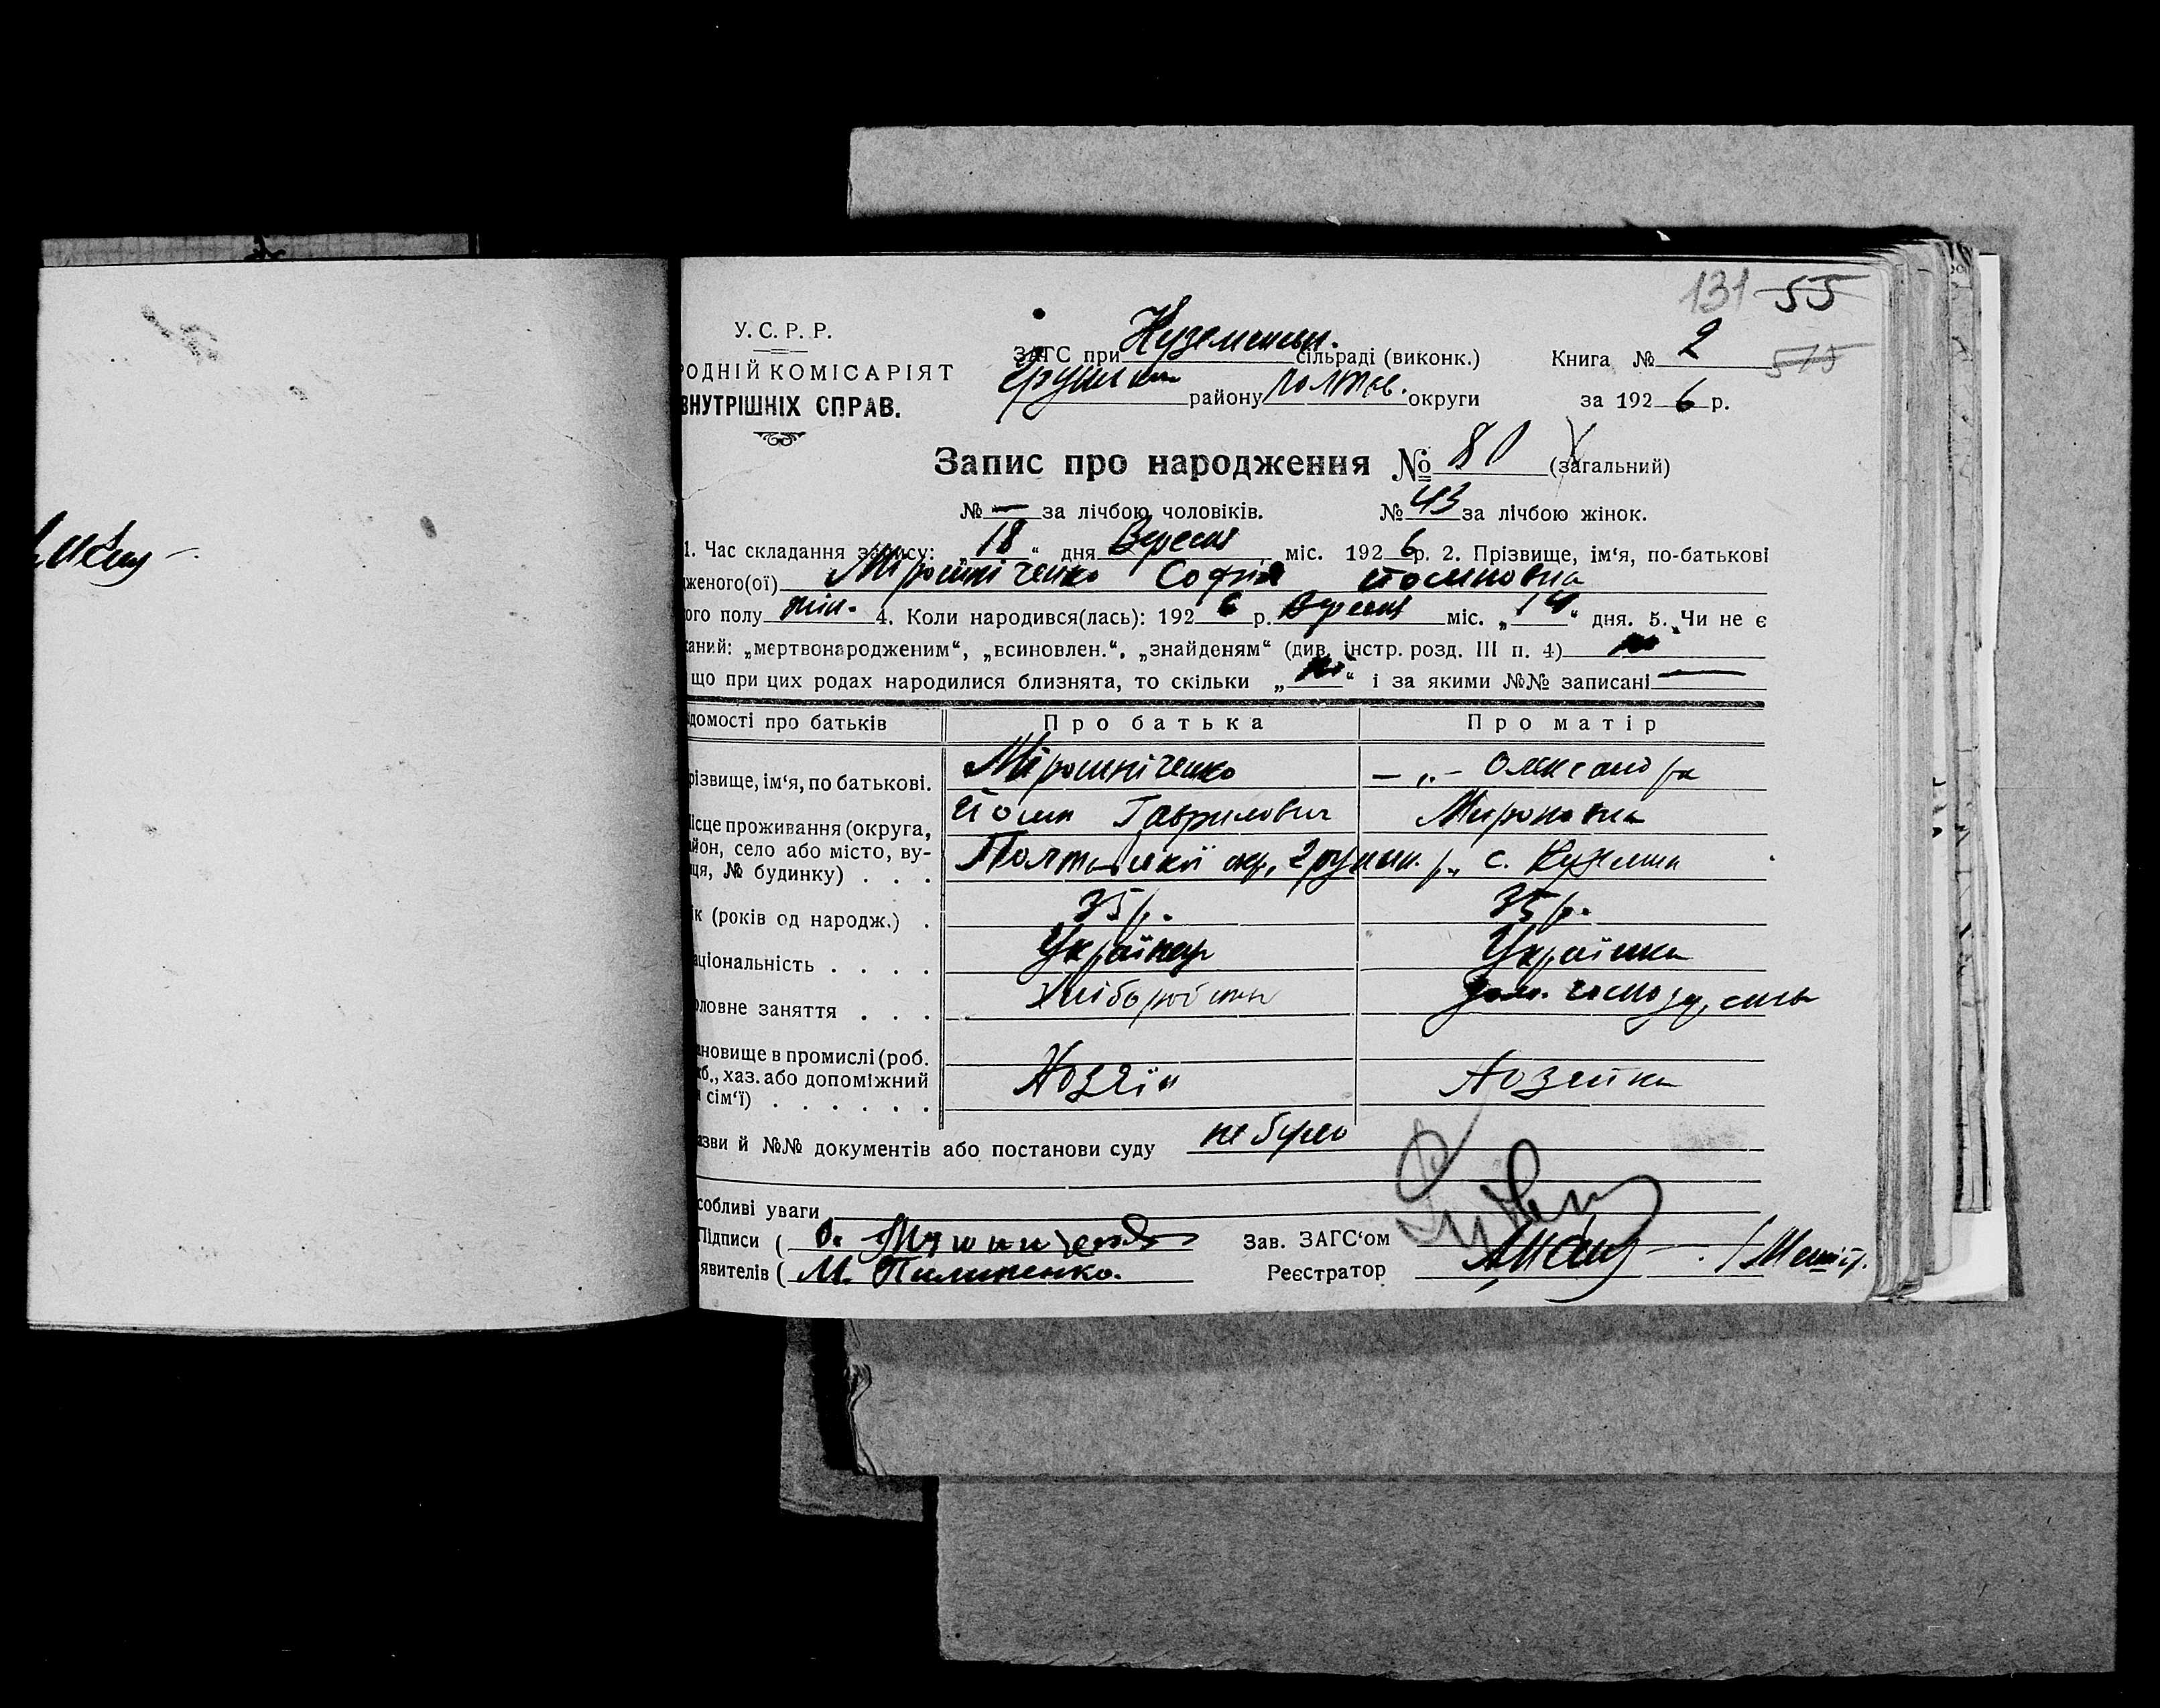 131 55
У. С. Р. Р.
РОДНІЙ КОМІСАРІЯТ
ВНУТРІШНІХ СПРАВ.
ЗАГС при Куземенськ. сільраді (виконк.) Книга № 2
515
Грунськ району Полтав. округи за 1926 р.
Запис про народження № 80 (загальний)
№ — за лічбою чоловіків. № 43 за лічбою жінок.
1. Час складання запису: „18“ дня Вересня міс. 1926 р. 2. Прізвище, ім‘я, по-батькові
дженого(ої) Мірошніченко Софія Йосиповна
ого полу жін. 4. Коли народився(лась): 1926 р. Вересня міс. „14“ дня. 5. Чи не є
каний: „мертвонародженим“, „всиновлен.“, „знайденям“ (див. інстр. розд. III п. 4) ні
що при цих родах народилися близнята, то скільки „ні“ і за якими №№ записані —
ідомості про батьків Про батька Про матір
різвище, ім‘я, по батькові. Мірошніченко — „ — Олександра
Йосип Гаврилович Мироновна
ісце проживання (округа,
айон, село або місто, ву-
ця, № будинку) . . . Полтавської окр., Грунськ. р., с. Куземин
ік (років од народж.) . 35 р. 35 р.
аціональність . . . . Українець Українка
оловне заняття . . . Хлібороб Дом. господ.
ановище в промислі (роб.
жб., хаз. або допоміжний
сім‘ї) . . . . . . Хозяїн Хозяйка
азви й №№ документів або постанови суду не було
собливі уваги
Підписи ( Зав. ЗАГС‘ом
явителів ( М. Пилипенко. Реєстратор